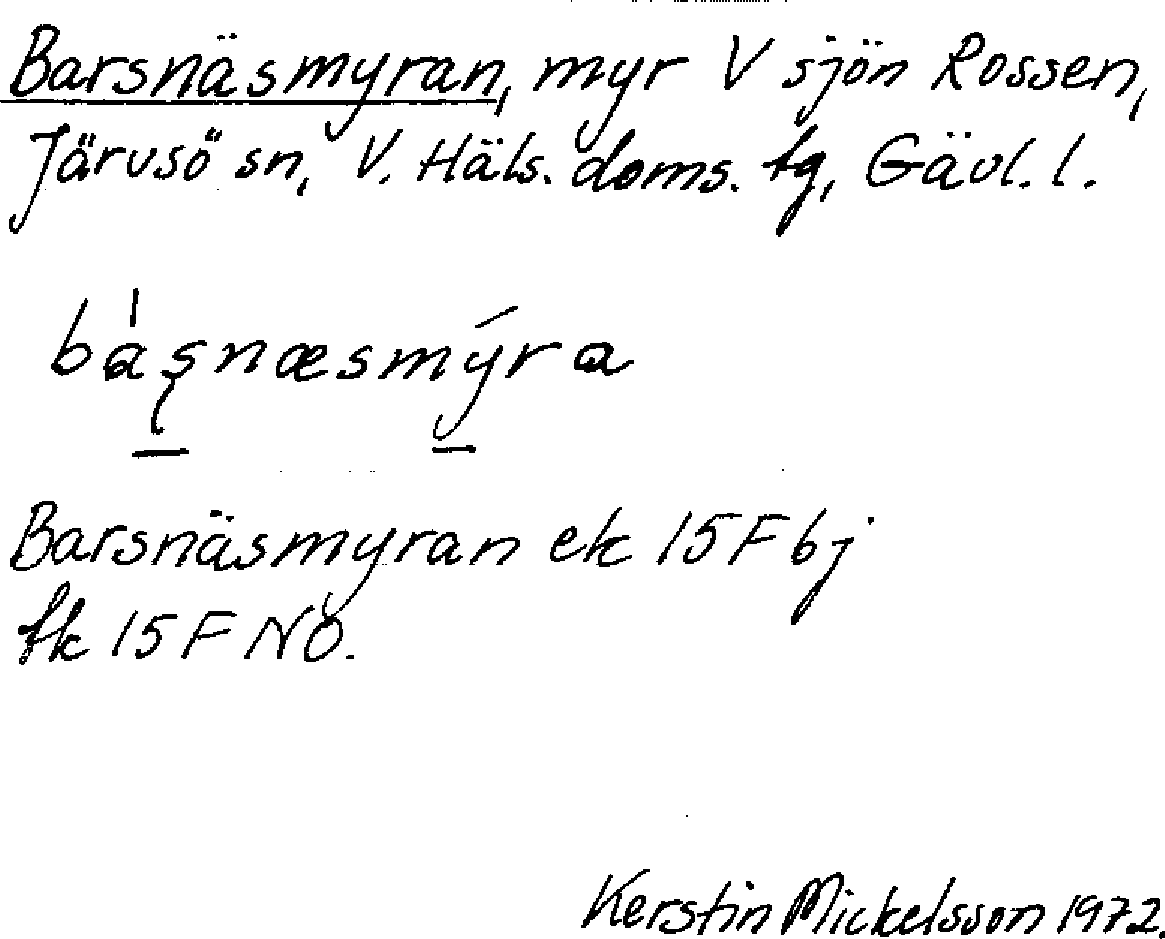 Barsnäsmyran, myr V sjön Rossen,
Järvsö sn, V. Häls. doms. tg, Gävl. l.
bàʂnæsmýra
Barsnäsmyran ek 15F6j
fk 15F NÖ.
Kerstin Mickelsson 1972.